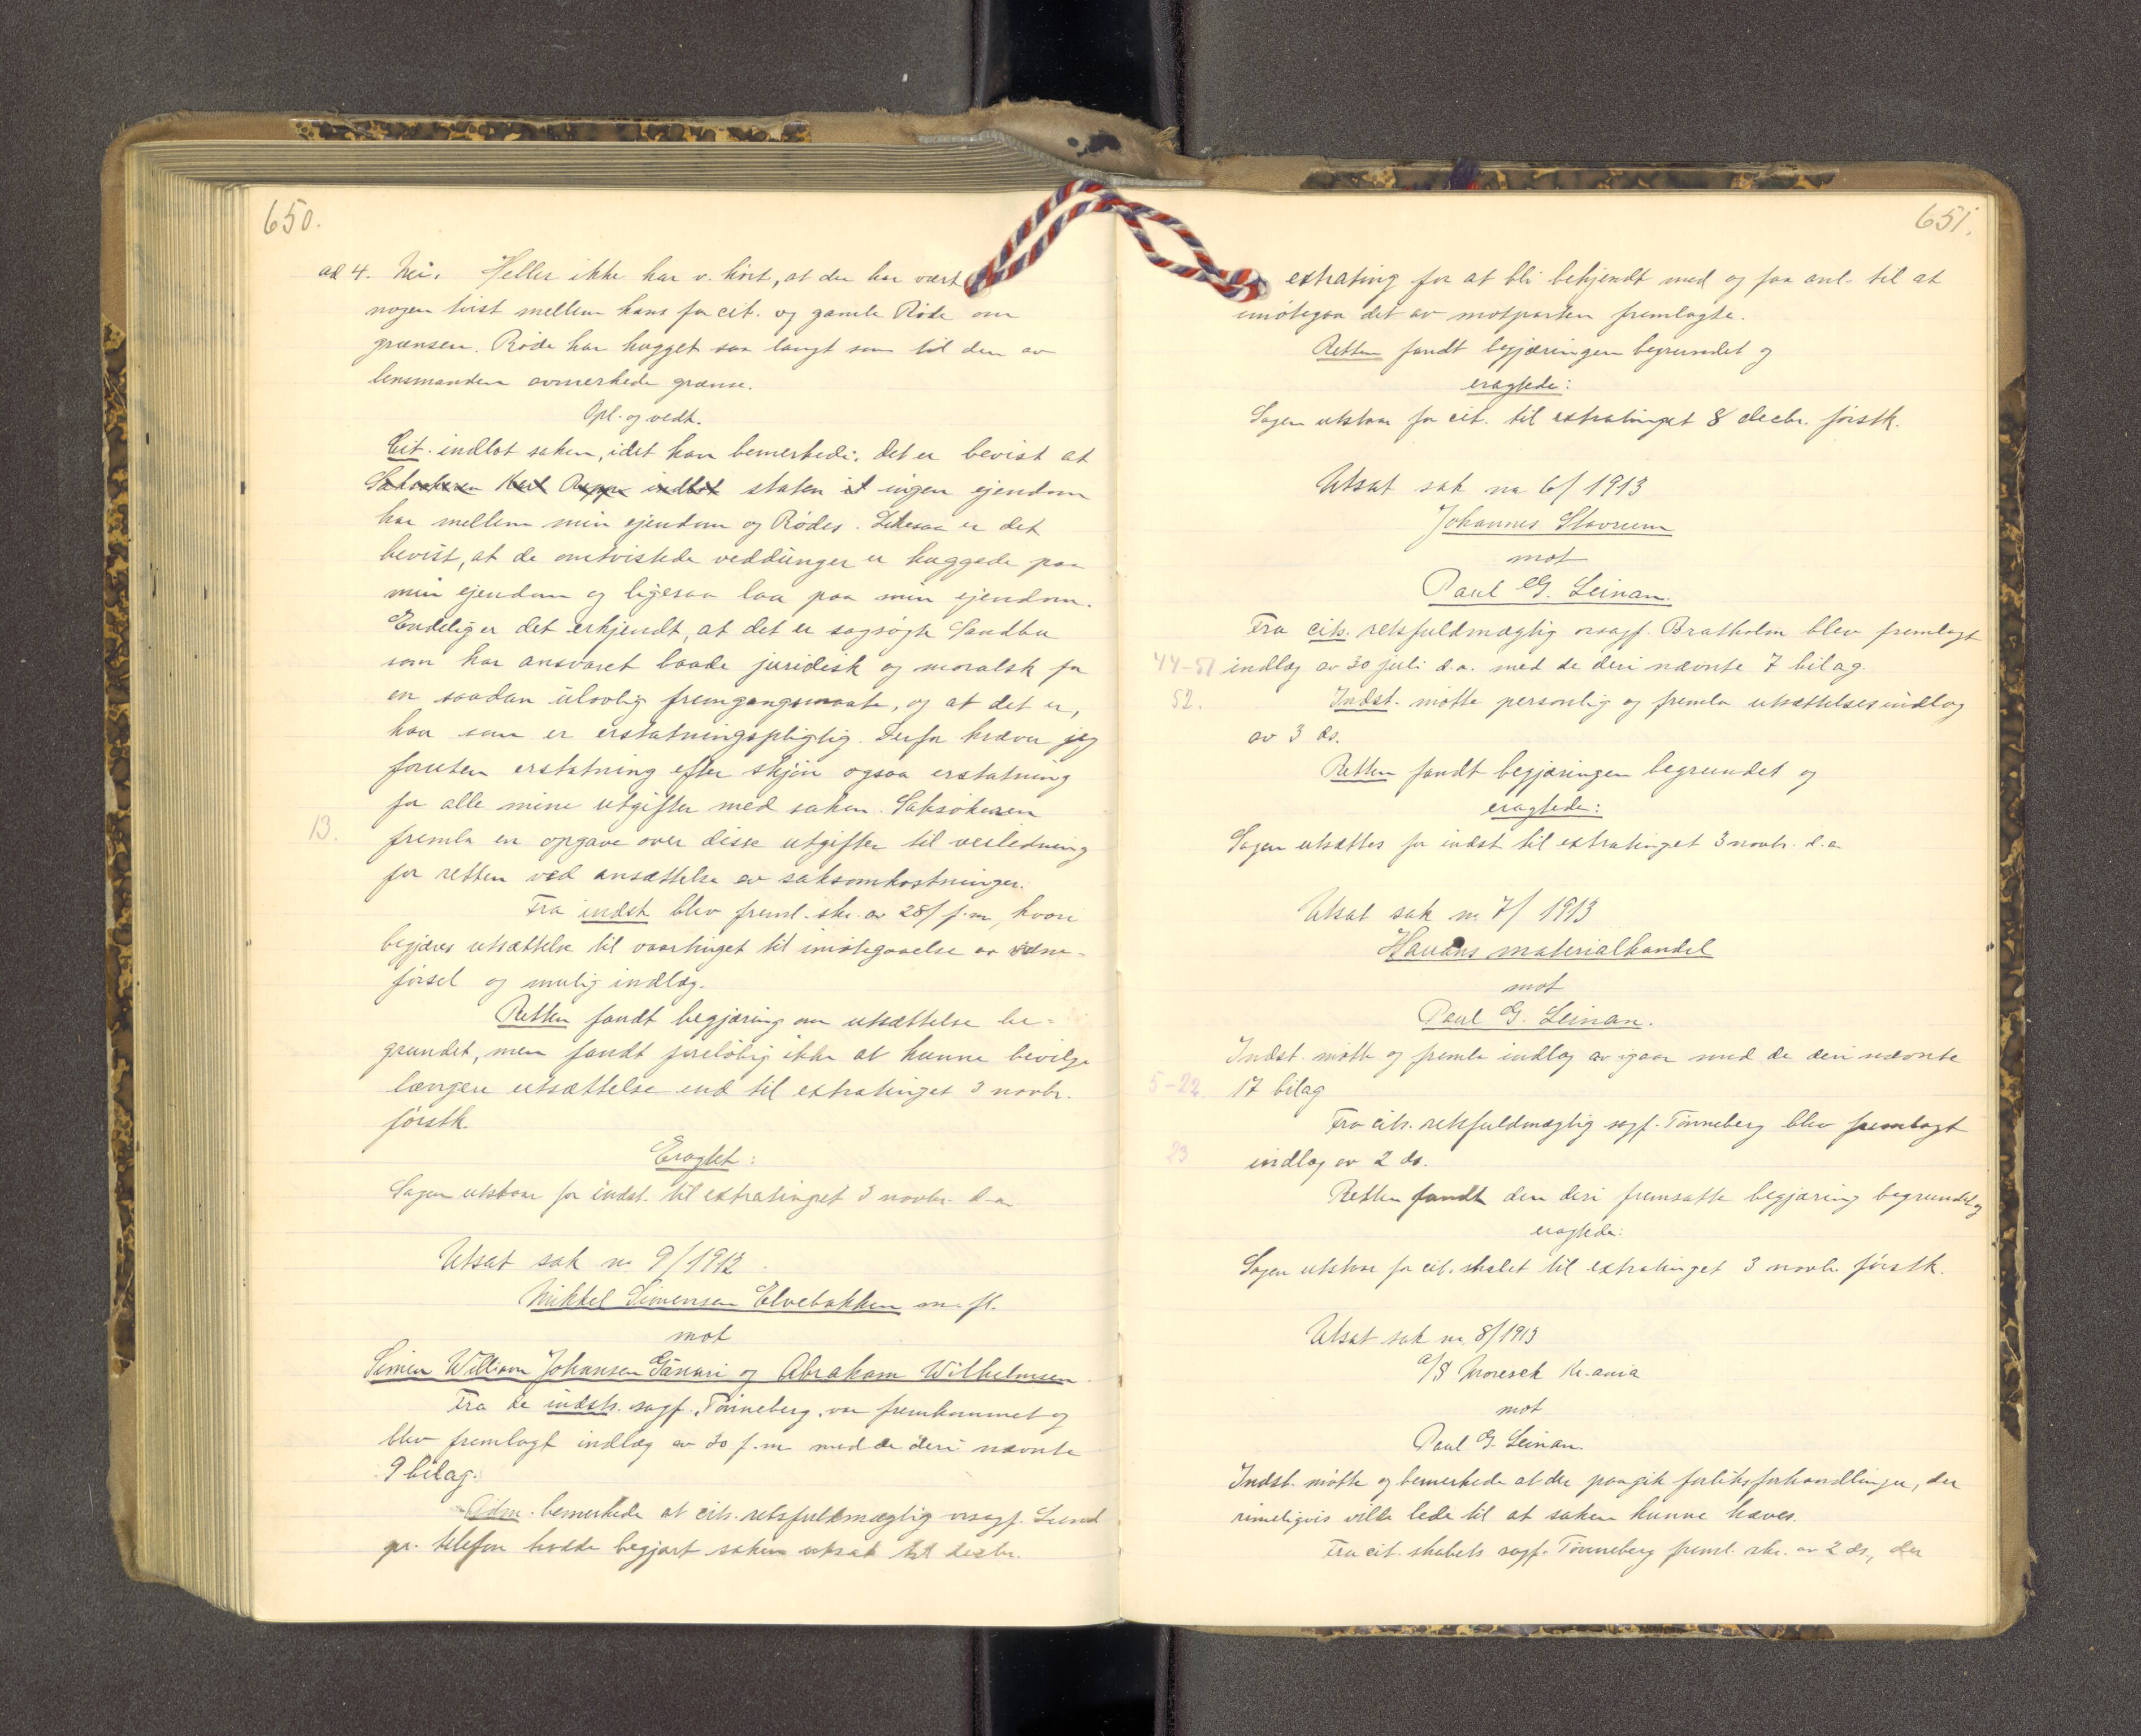 650.
ad 4. Nei. Heller ikke har v. hört, at der har vært
nogen tvist mellem hans far cit. og gamle Röde om
grænsen. Röde har hugget saa langt som til den av
lensmanden avmerkede grænse.
Opl. og vedt.
Cit. indlot saken, idet han bemerkede: det er bevist at
Saksökeren Karl indlot staten et ingen ejendom
har mellem min ejendom og Rödes. Likesaa er det
bevist, at de omtvistede veddunger er huggede paa
min ejendom og ligesaa laa paa min ejendom.
Endelig er det erkjendt, at det er sagsögte Sandbu
som har ansvaret baade juridisk og moralsk for
en saadan ulovlig fremgangsmaate, og at det er,
han som er erstatningspligtig. Derfor kræver jeg
foruten erstatning efter skjön ogsaa erstatning
for alle mine utgifter med saken. Saksökeren
13. fremla en opgave over disse utgifter til veiledning
for retten ved ansættelse av saksomkostninger.
Fra indst. blev freml. skr. av 28/ f.m, hvori
begjæres utsættelse til vaartinget til imötegaaelse av vidne-
försel og mulig indlæg.
Retten fandt begjæring om utsættelse be-
grundet, men fandt foreløbig ikke at kunne bevilge
længere utsættelse end til extratinget 3 novbr.
förstk.
Eragtet:
Sagen utstaar for indst. til extratinget 3 novbr. d.a.
Utsat sak nr 9/1912.
Mikkel Simensen Elvebakken m. fl.
mot
Simen William Johansen Gänari og Abraham Wilhelmsen.
Fra de indst. sagf. Tönneberg, var fremkommet og
blev fremlagt indlæg av 30 f.m. med de deri nævnte
9 bilag.
Adm. bemerkede at cits. retsfuldmægtig orsagf. Lund
pr. telefon hadde begjært saken utsat til decbr.
651.
extrating for at bli bekjendt med og faa anl. til at
imötegaa det av motparten fremlagte.
Retten fandt begjæringen begrundet og
eragtede:
Sagen utstaar for cit. til extratinget 8 decbr. förstk.
Utsat sak nr 6/1913
Johannes Stavrum
mot
Paul G. Leinan.
Fra cits. retsfuldmægtig orsagf. Bratholm blev fremlagt
44-51 indlæg av 30 juli d.a. med de deri nævnte 7 bilag.
52. Indst. mötte personlig og fremla utsættelsesindlæg
av 3 ds.
Retten fandt begjæringen begrundet og
eragtede:
Sagen utsættes for indst til extratinget 3 novbr. d.a
Utsat sak nr. 7/1913
Hauans materialhandel
mot
Paul G. Leinan.
Indst. mötte og fremla indlæg av igaar med de deri nævnte
5-22 17 bilag
Fra cits. retsfuldmægtig sagf. Tönneberg blev fremlagt
23 indlæg av 2 ds.
Retten fandt den deri fremsatte begjæring begrundet og
eragtede:
Sagen utstaar for cit. skabet til extratinget 3 novbr. förstk.
Utsat sak nr. 8/1913
a/s Kr.ania
mot
Paul G. Leinan.
Indst. mötte og bemerkede at der paagik forliksforhandlinger, der
rimeligvis vilde lede til at saken kunne hæves.
Fra cit. skabets sagf. Tönneberg freml. skr. av 2 ds., der